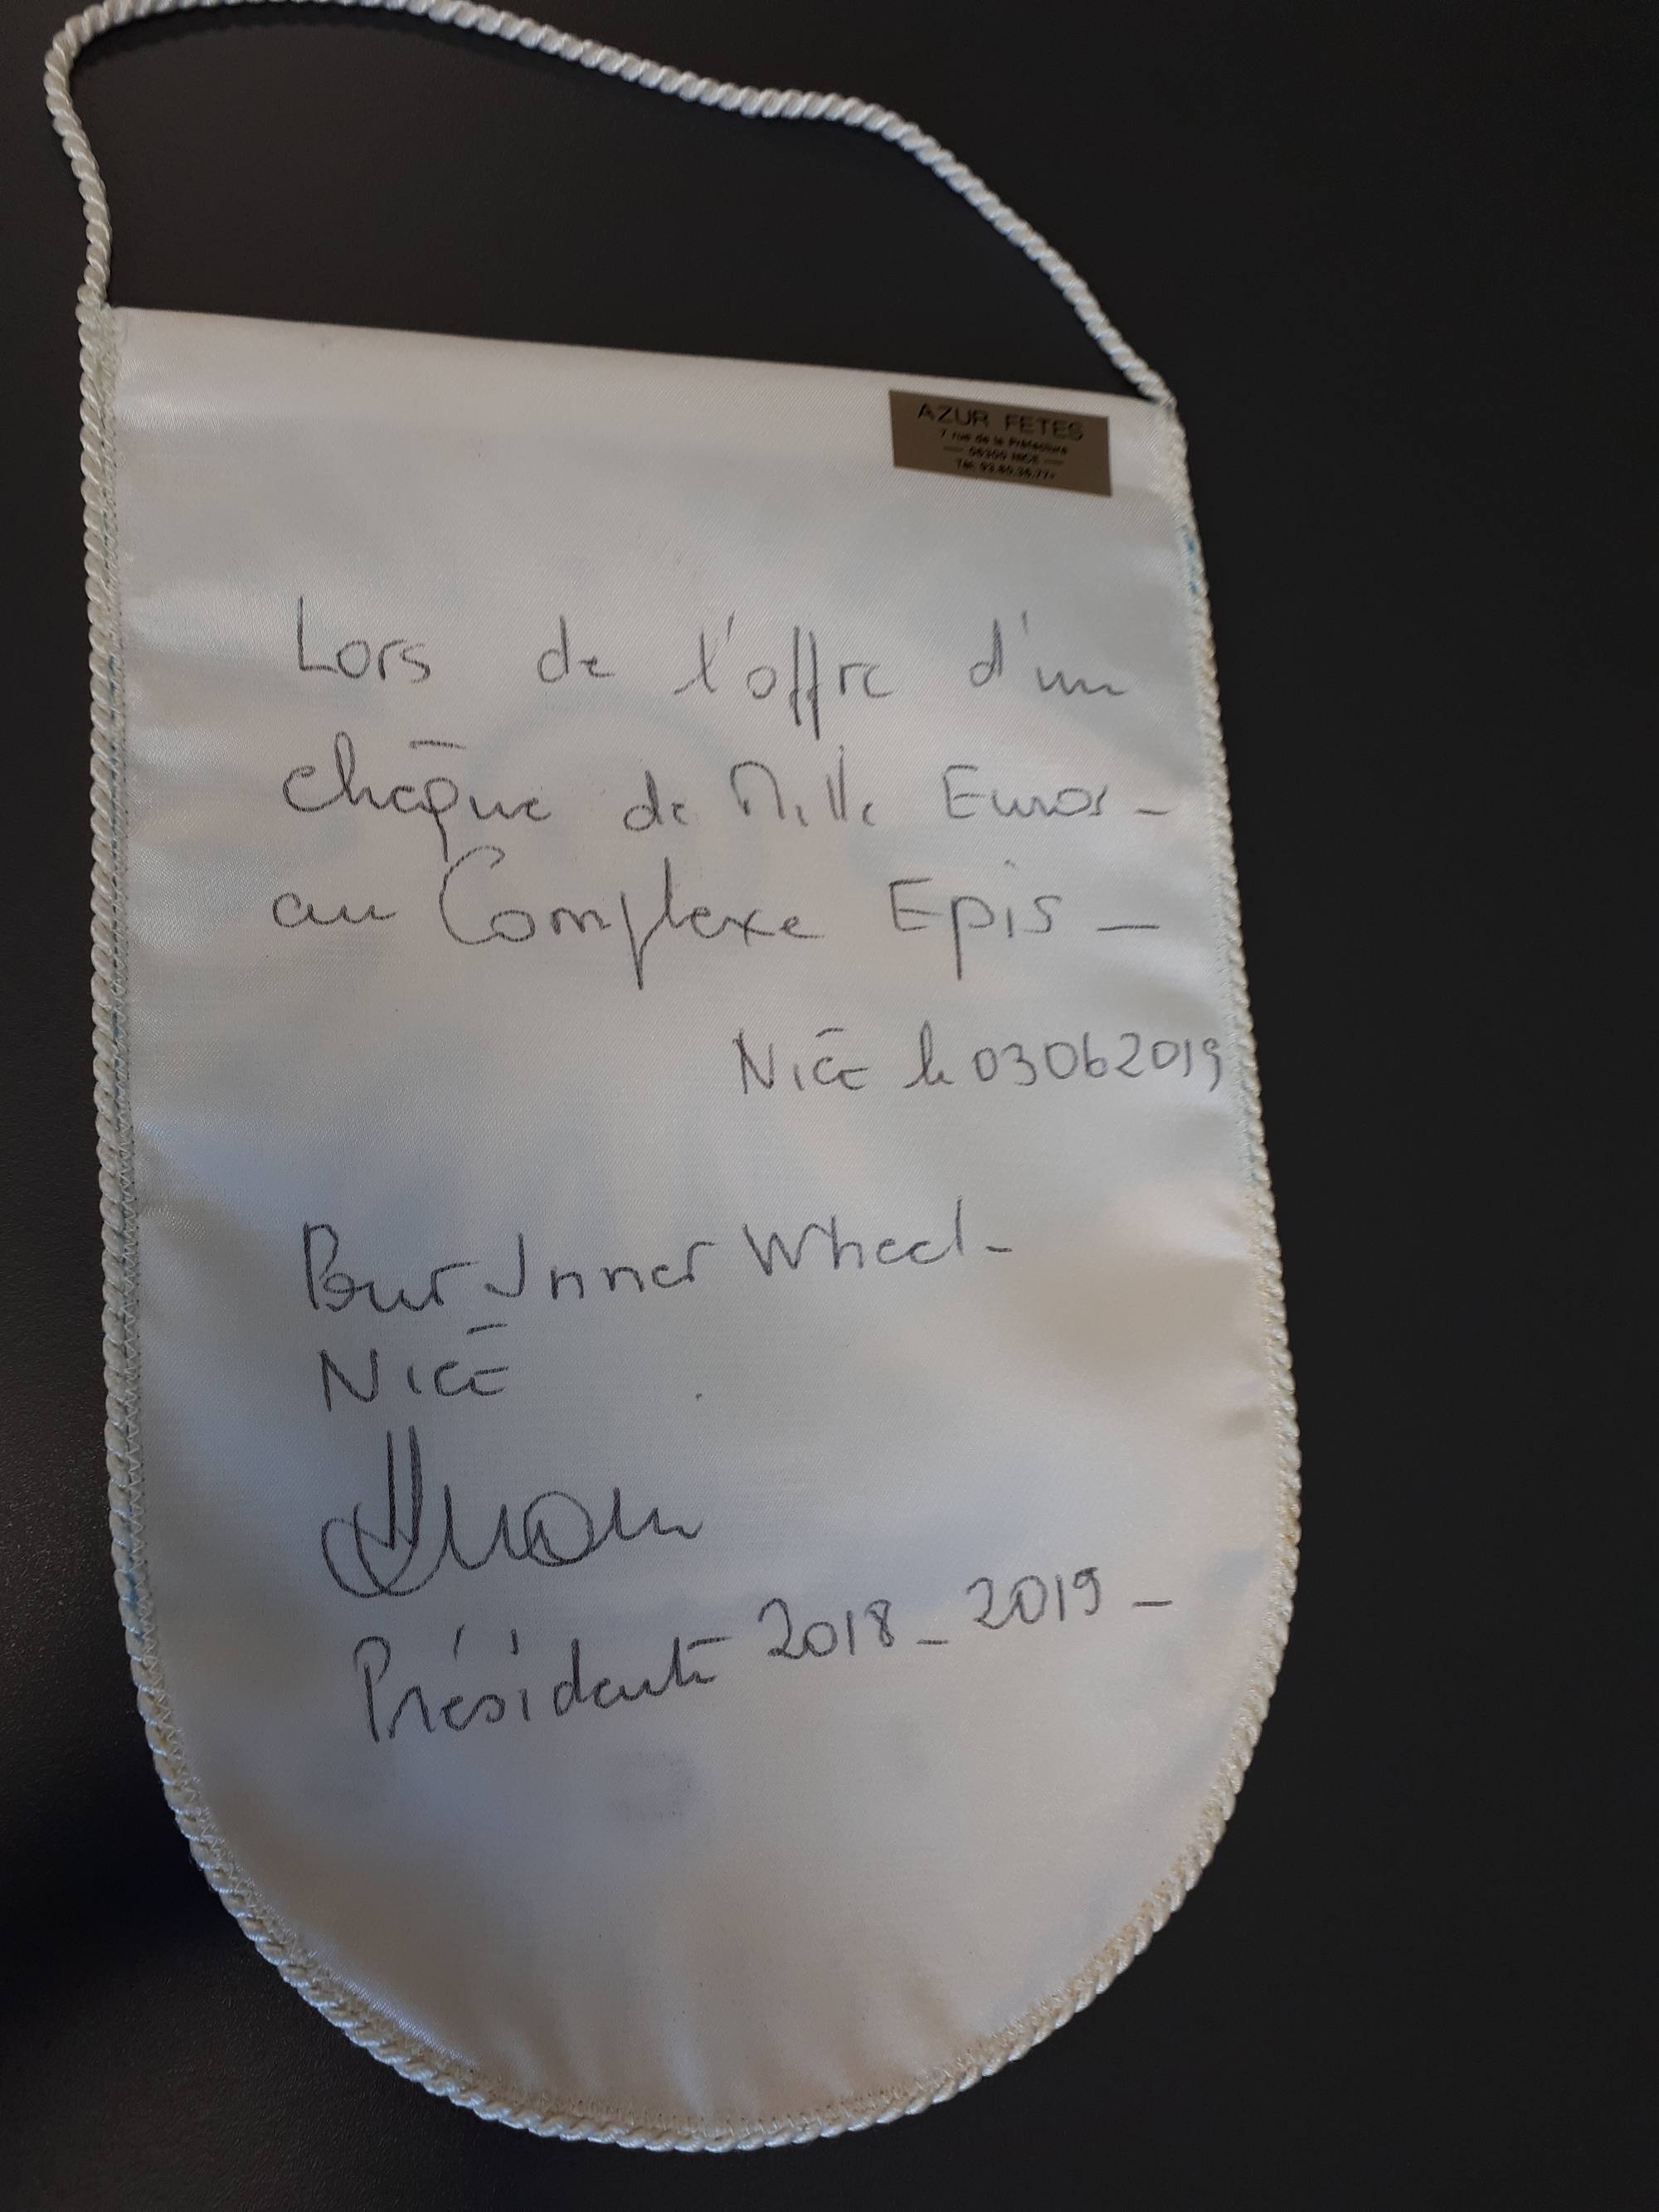 AZUR FETES
7 rue de la Préfecture
— 06300 NICE —
Tél. 93.80.36.77
Lors de l'offre d'un
chèque de Mille Euros -
au Complexe Epis -
Nice le 03062019
Pour Inner Wheel -
Nice
Présidente 2018 - 2019 -